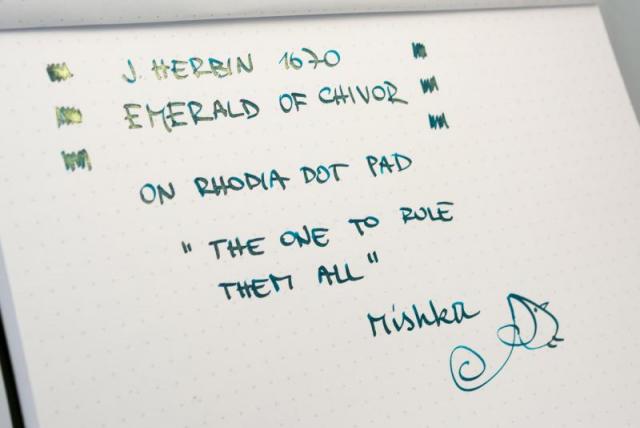 J. HERBIN 1670
EMERALD OF CHIVOR
ON RHODIA DOT PAD
" THE ONE TO RULE
THEM ALL"
Mishka